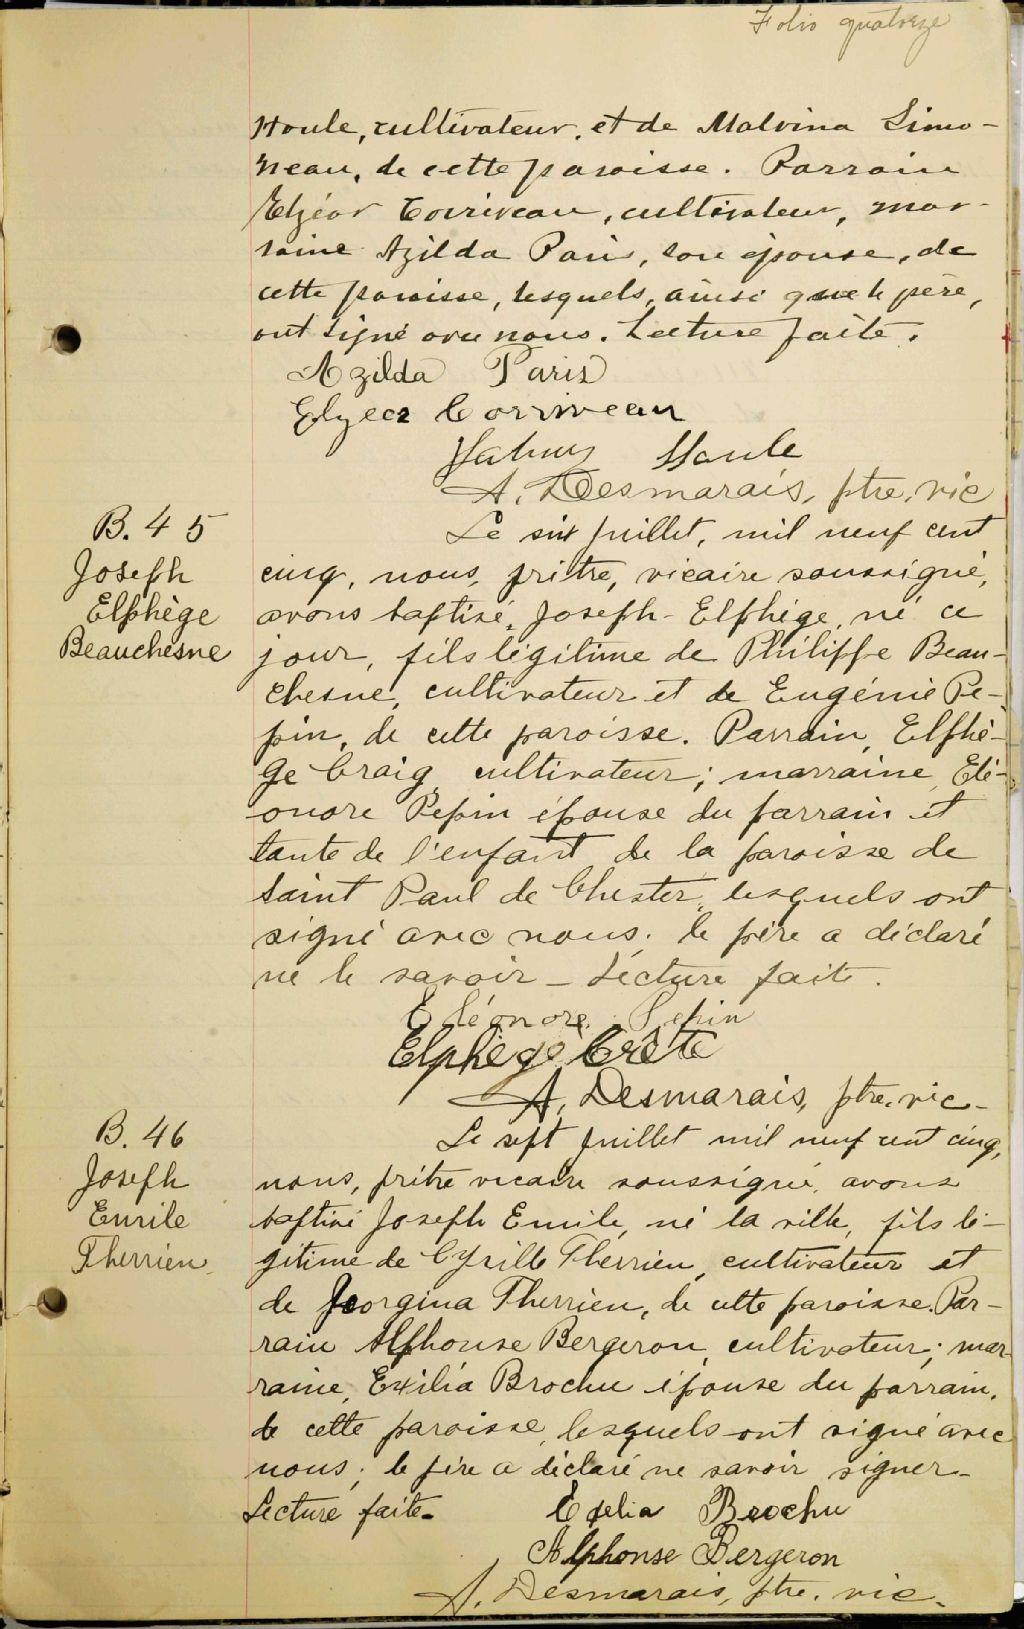 Folio quatorze
Houle, cultivateur, et de Malvina Simo-
neau, de cette paroisse. Parrain
Elzéar Corriveau, cultivateur, mar-
raine Azilda Paris, son épouse, de
cette paroisse, lesquels, ainsi que le père,
ont signé avec nous. Lecture faite.
Azilda Paris
Elzear Corriveau
Houle
A. Desmarais, ptre, vic
B. 45
Joseph
Elphège
Beauchesne
Le six juillet, mil neuf cent
cinq, nous, prêtre, vicaire soussigné,
avons baptisé, Joseph-Elphège, né ce
jour, fils légitime de Philippe Beau-
chesne, cultivateur et de Eugénie Pe-
pin, de cette paroisse. Parrain, Elphè-
ge Craig, cultivateur; marraine, Elé-
onore Pepin épouse du parrain et
tante de l'enfant de la paroisse de
Saint Paul de Chester, lesquels ont
signé avec nous. le père a déclaré
ne le savoir - Lecture faite.
Eléonore Pepin
Elphège Crête
A. Desmarais, ptre. vic-
B. 46
Joseph
Emile
Therrien
Le sept juillet mil neuf cent cinq,
nous, prêtre vicaire soussigné, avons
baptisé Joseph Emile, né la veille, fils lé-
gitime de Cyrille Therrien, cultivateur et
de Georgina Therrien, de cette paroisse. Par-
rain Alphonse Bergeron, cultivateur; mar-
raine, Exilia Brochu épouse du parrain,
de cette paroisse, lesquels ont signé avec
nous; le père a déclaré ne savoir signer-
Lecture faite-
Exelia Brochu
Alphonse Bergeron
A. Desmarais, ptre. vic-